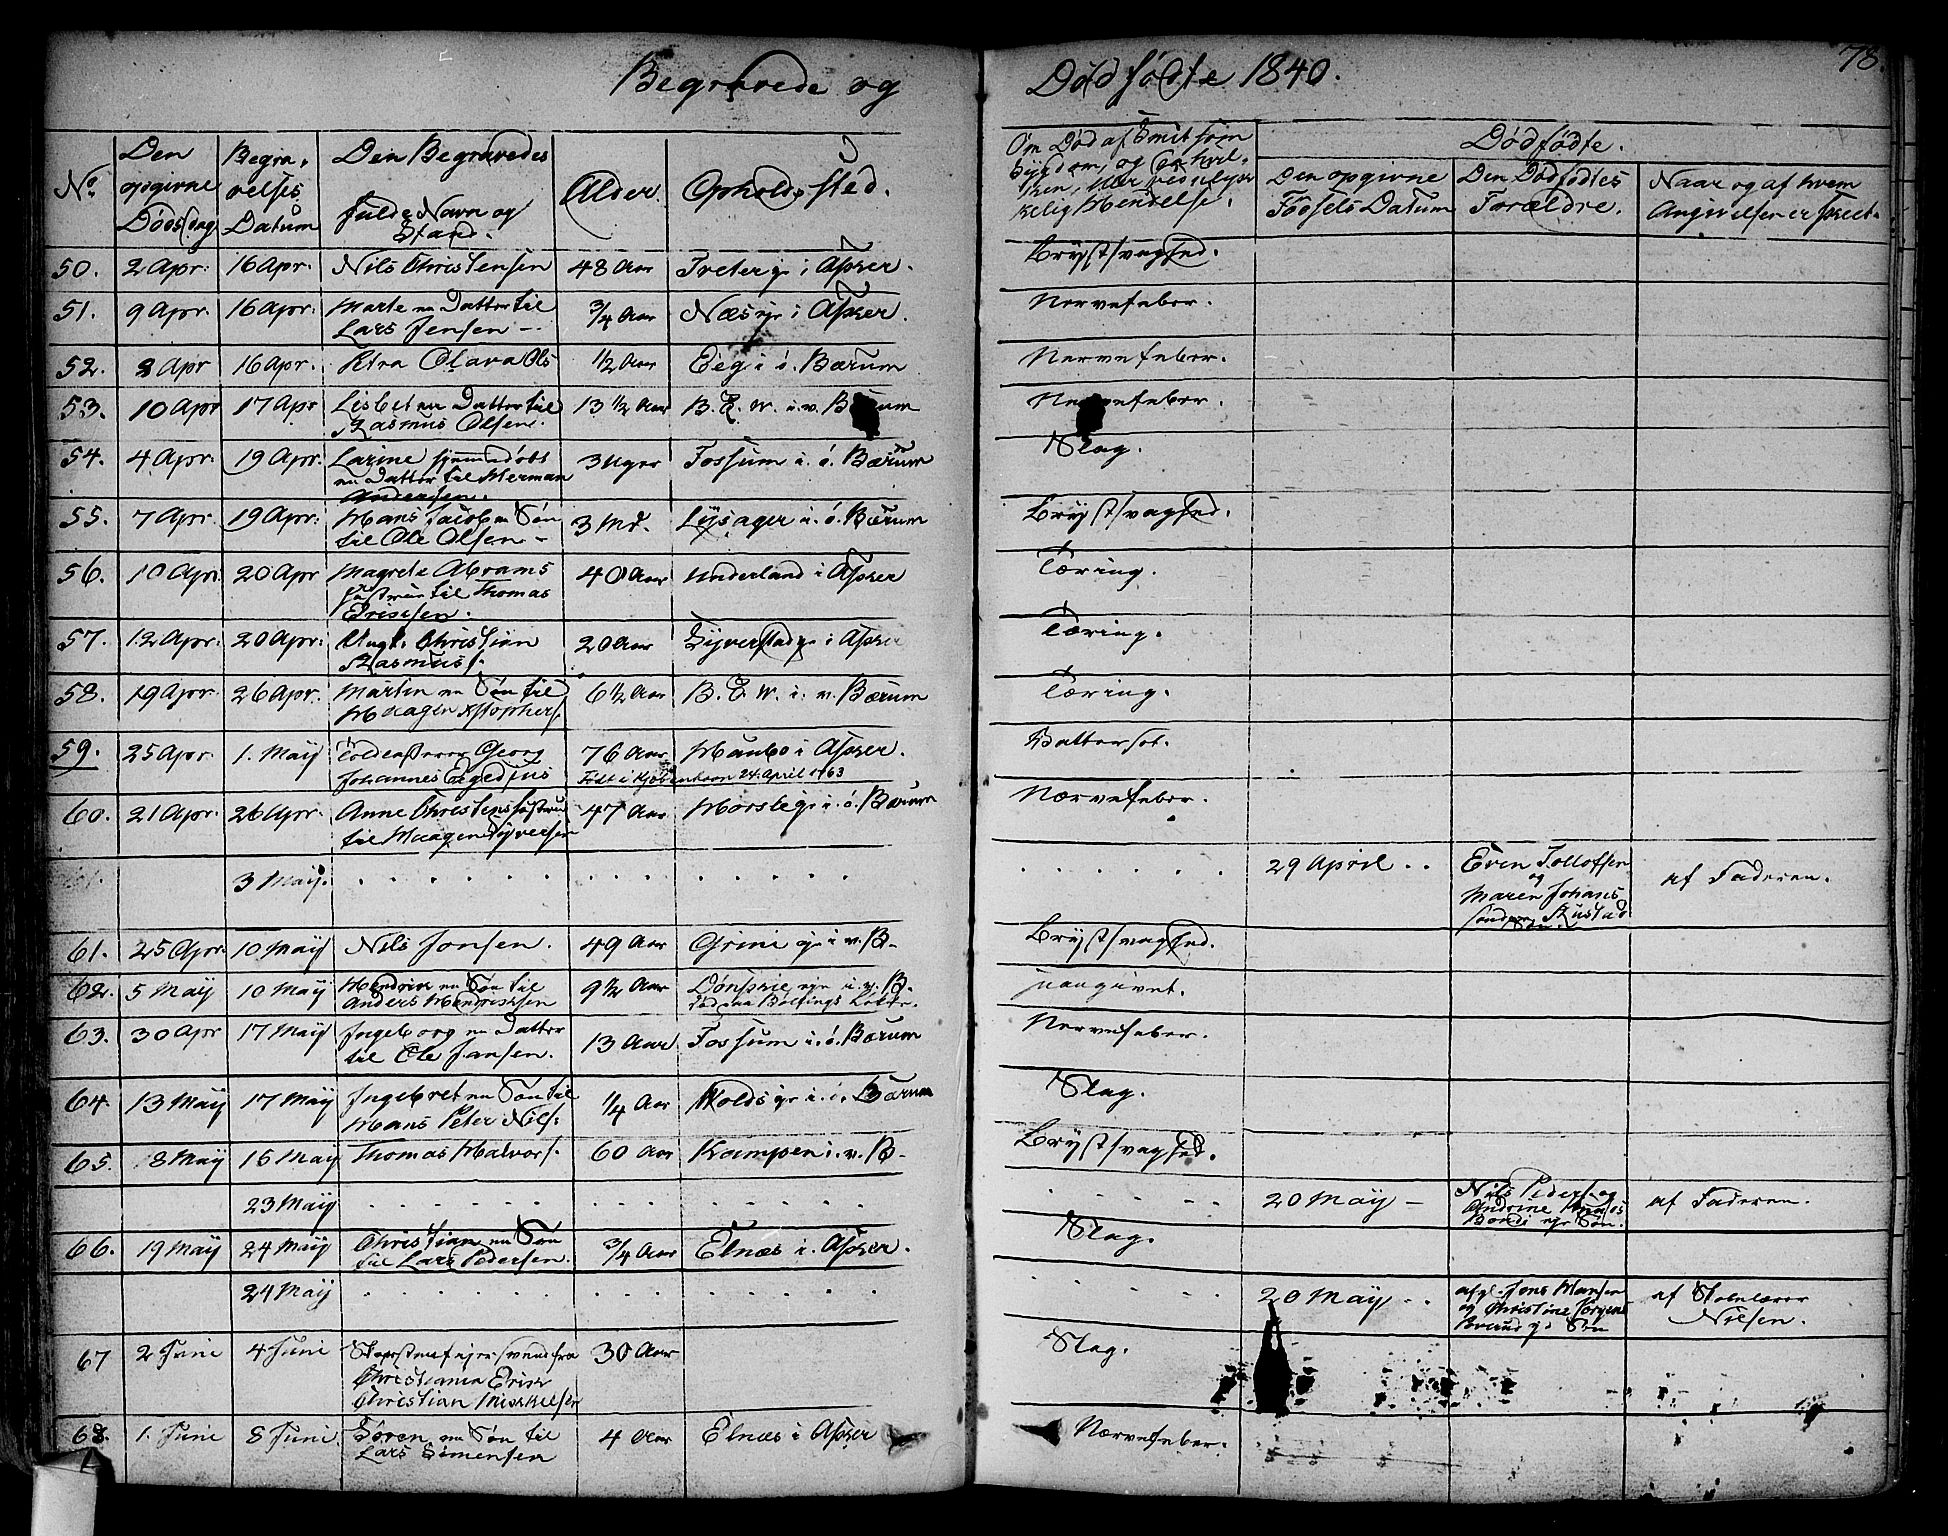 78.
Begravede og Dødfødte 1840.
No.
Den opgivne Dødsdag
Begravelses Datum
Den Begravedes fulde Navn og Stand.
Alder.
Opholdssted.
Om Død af Smitsom Sygdom, og
Dødfødte.
Den opgivne Fødsels Datum
Den Dødfødtes Forældre.
Naar og af hvem Angivelsen er skeet.
50. 2 Apr: 16 Apr: Nils Christensen 48 Aar i Asker. Brystsvaghed.
51. 9 Apr: 16 Apr. Marte en Datter til Lars Jensen – 3/4 Aar Næs eje i Asker. Nervefeber.
52. 2 Apr 16 Apr. Petra Olava Ols 1/2 Aar i ø. Bærum Nervefeber.
53. 10 Apr 17 Apr Lisbet en Datter til Rasmus Olsen. 13 1/2 Aar B. E. W. i v. Bærum Nervefeber.
54. 4 Apr: 19 Apr: Larine hjemmedøbt en Datter til Herman Andersen. 3 Uger Fossum i. ø. Bærum Slag.
55. 7 Apr 19 Apr: Hans Jacob en Søn til Ole Olsen – 3 Md. Lysager i. ø. Bærum Brystsvaghed.
56. 10 Apr 20 Apr Magrete Abrams Hustrue til Thomas Ericksen. 40 Aar Underland i Asker Tæring.
57. 12 Apr: 20 Apr: Ungk. Christian Rasmuss. 20 Aar i Asker Tæring.
58. 19 Apr: 26 Apr: Martin en Søn til Haagen Xstophers. 6 1/2 Aar B. E. W. i. v. Bærum Tæring.
59. 25 Apr: 1. May Georg Johannes Egedius 76 Aar i Asker. Født i Kjøbenhavn 24. April 1763 Vattersot.
60. 21 Apr: 26 Apr: Anne Christens Hustrue til Haagen Syversen 47 Aar i. ø. Bærum Nervefeber.
3 May. 29 April . . Even Tollofsen og Maren Johans Rustad Søn. af Faderen.
61. 25 Apr: 10 May Nils Jonsen. 49 Aar Grini eje i v. B– Brystsvaghed.
62. 5 May 10 May Hendrik en Søn til Anders Hendriksen 9 1/2 Aar Dønskie eje i. v. B.
63. 30 Apr 17 May Ingeborg en Datter til Ole Jansen. 13 Aar Fossum i. ø. Bærum Nervefeber.
64. 13 May 17 May Ingebret en Søn til Hans Peter Nils. 1/4 Aar i. ø. Bærum Slag.
65. 8 May 16 May Thomas Halvors. 60 Aar Kampen i. v. B– Brystsvaghed.
23 May 20 May – Nils Peders. og Andrine Søn. af Faderen.
66. 19 May 24 May Christian en Søn til Lars Pedersen. 3/4 Aar Elnæs i. Asker. Slag.
24 May 20 May . . Jens Hansen og Christine Søn af Skolelærer Nilsen.
67 2 Juni 4 Juni fra Christiania Erick Christian Mickelsen 30 Aar Slag.
68. 1. Juni 8 Juni. Søren en Søn til Lars Simensen 4 Aar Elnæs i Asker Nærvefeber.